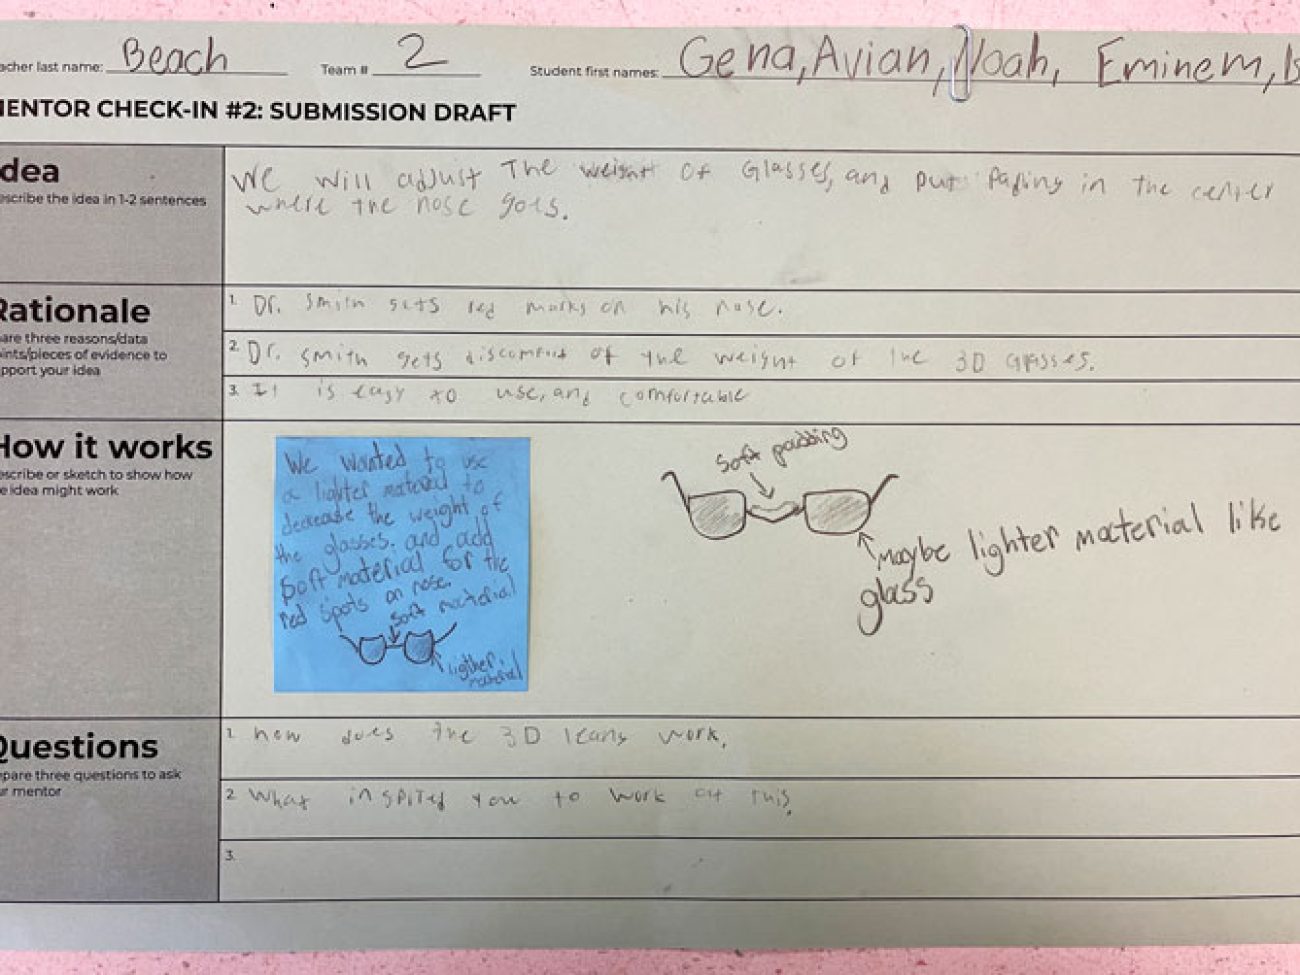 acher last name: Beach Team # 2 Student first names: Gena, Avian, Noah, Eminem, Is
MENTOR CHECK-IN #2: SUBMISSION DRAFT
dea
escribe the idea in 1-2 sentences
We will adjust The weight of Glasses, and put Pading in the center
where the nose goes.
Rationale
are three reasons/data
ints/pieces of evidence to
pport your idea
1. Dr. Smith gets red marks on his nose.
2. Dr. smith gets discomfort of the weight of the 3D Glasses.
3. It is easy to use, and comfortable
How it works
escribe or sketch to show how
e idea might work
We wanted to use
a lighter material to
decrease the weight of
the glasses. and add
Soft material for the
red spots on nose.
soft material
ligther
material
soft padding
maybe lighter material like
glass
Questions
epare three questions to ask
ur mentor
1. how does the 3D leans work,
2 What inspired you to work at this,
3.